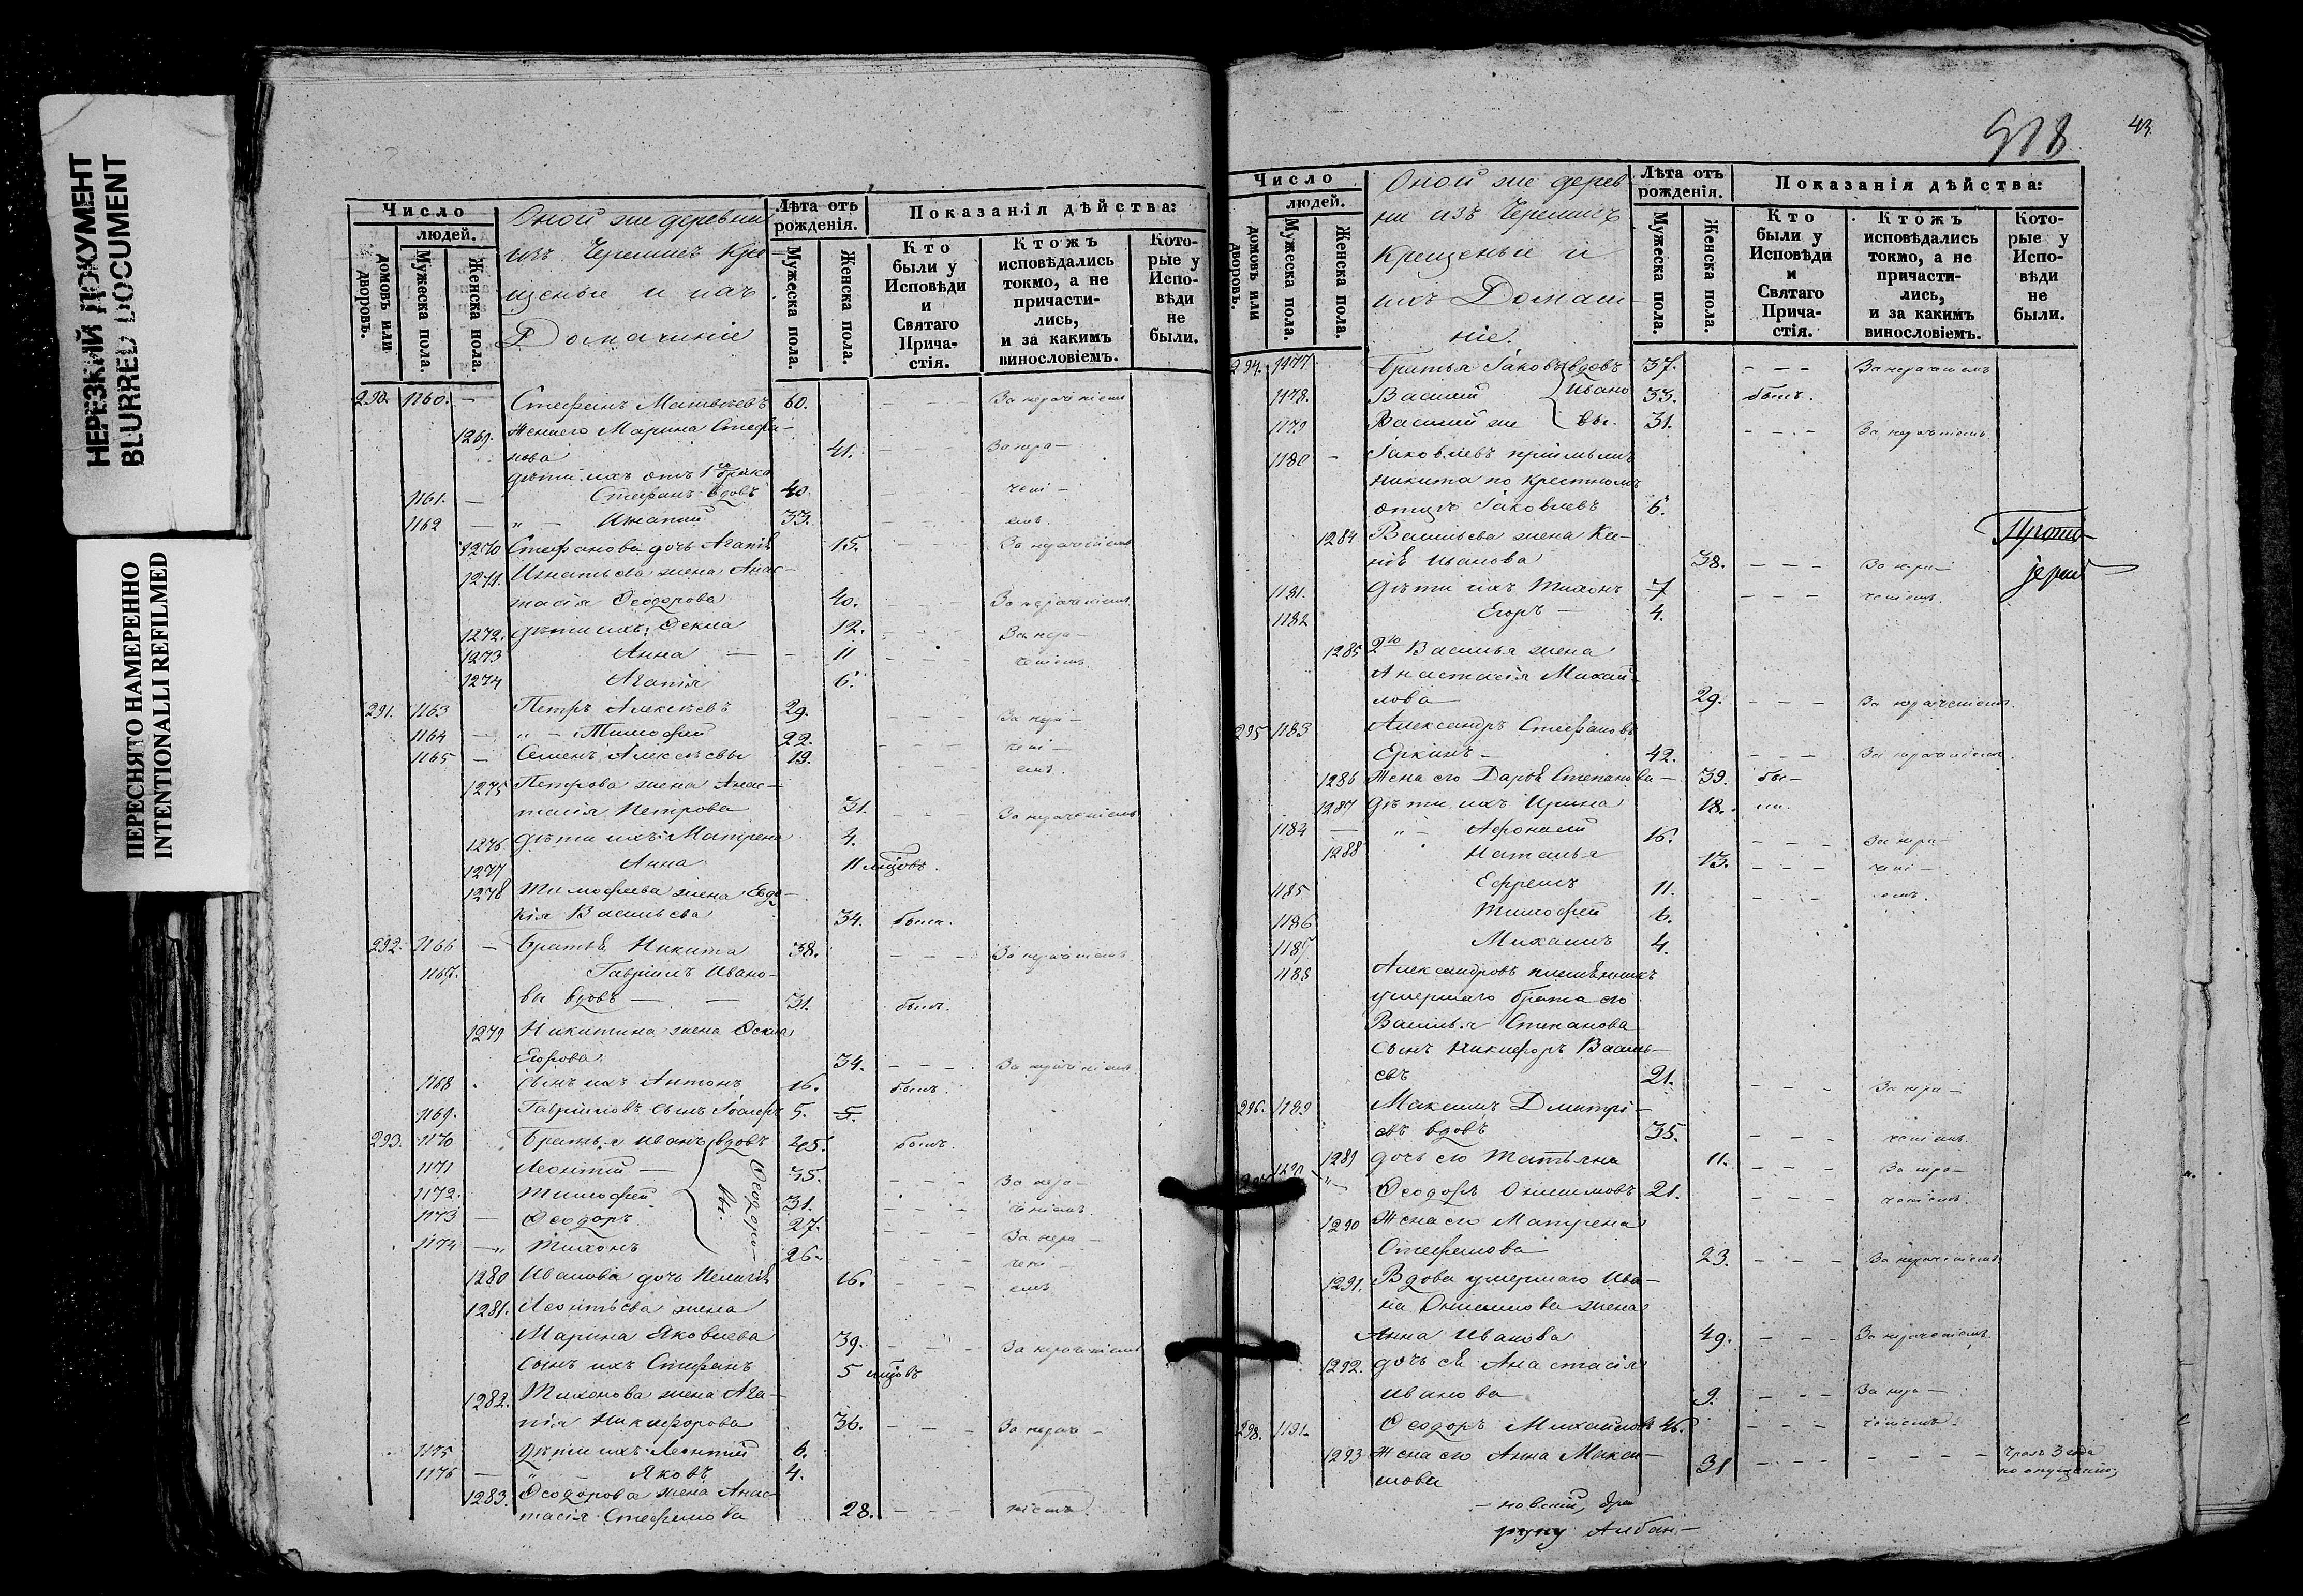 НЕРЕЗКИЙ ДОКУМЕНТ
BLURRED DOCUMENT
ПЕРЕСНЯТО НАМЕРЕННО
INTENTIONALLI REFILMED
Число
людей.
домовъ или дворовъ.
Мужеска пола.
Женска пола.
Оной же деревни
изъ Черемисъ Кре-
щеные и ихъ
Домашніе
Лѣта отъ рожденія.
Мужеска пола.
Женска пола.
Показанія дѣйства:
Кто были у Исповѣди и Святаго Прича-стія.
Ктожъ исповѣдались токмо, а не причасти-лись, и за какимъ винословіемъ.
Кото-рые у Испо-вѣди не были.
290. 1160. — Стефанъ Матвѣевъ 60. - - - За нераченіемъ
1269. Жена его Марина Стефа-
нова 41. - - - За нера-
дѣти ихъ отъ 1го брака
1161. — Стефанъ вдовъ 40. - - - чені-
1162 — " — Игнатий 33. - - - емъ.
1270 Стефанова дочь Агапія 15. - - - За нераченіемъ
1271. Игнатьева жена Анас-
тасія Ѳеодорова 40. - - - За нераченіемъ
1272. дѣти ихъ: Ѳекла 12. - - - За нера-
1273 Анна — 11 - - - ченіемъ
1274 Агапія 6.
291. 1163 Петръ Алексѣевъ 29. - - - За нера-
1164 — " — Тимофей 22. - - - чені-
1165 — Семенъ Алексѣевы 19. - - - емъ.
1275 Петрова жена Анас-
тасія Петрова 31. - - - За нераченіемъ
1276 дѣти ихъ: Матрена 4.
1277 Анна 11 мцовъ.
1278 Тимофеева жена Евдо-
кія Васильева 34. была.
292. 1166 — Братья Никита 38. - - - За нераченіемъ
1167. Гавріилъ Ивано-
вы вдовъ — — 31. былъ.
1279 Никитина жена Ѳекла
Егорова 34. - - - За нераченіемъ
1168 Сынъ ихъ Антонъ 16. былъ.
1169. Гавріиловъ сынъ Іосифъ 5. 5.
293. 1170 Братья Иванъ вдовъ 45. былъ.
1171 Леонтій — 35. - - - За нера-
1172. Тимофей 31. - - - ченіемъ.
1173 — Ѳеодоръ 27. - - - За нера-
1174 — " Тихонъ 26. - - - чені-
Ѳеодоро-
вы.
1280 Иванова дочь Пелагія 16. - - - емъ
1281. Леонтьева жена
Марина Яковлева 39. - - - За нераченіемъ
Сынъ ихъ Стефанъ 5 мцовъ
1282. Тихонова жена Ага-
пія Никифорова 36. - - - За нерач-
1175 дѣти ихъ: Леонтий 6.
1176 — " Яковъ 4.
1283. Ѳеодорова жена Анас-
тасія Стефанова 28. - - - ніемъ
918
43
Число
людей.
домовъ или дворовъ.
Мужеска пола.
Женска пола.
Оной же дерев
ни изъ Черемисъ
Крещеные и
ихъ Домаш-
ніе.
Лѣта отъ рожденія.
Мужеска пола.
Женска пола.
Показанія дѣйства:
Кто были у Исповѣди и Святаго Прича-стія.
Ктожъ исповѣдались токмо, а не причасти-лись, и за какимъ винословіемъ.
Кото-рые у Испо-вѣди не были.
294. 1177 Братья Іаковъ вдовъ 37. - - - За нераченіемъ
1178. Василий Ивано 33. былъ.
1179 Василий же вы. 31. - - - За нераченіемъ.
1180 — Іаковлевъ приимышъ
Никита по крестному
отцу Іаковлевъ 6.
1284 Васильева жена Ксе-
нія Иванова 38. - - - За нера-
1181. дѣти ихъ Тихонъ 7 - - - ченіемъ.
1182 Егоръ — 4.
1285 2го Василья жена
Анастасія Михай-
лова 29. - - - За нераченіемъ.
295 1183 Александръ Стефановъ
Еркинъ — 42. - - - За нераченіемъ
1286 Жена его Дарья Степанова — 39. бы-
1287 дѣти ихъ Ирина 18. ли.
1184 — " - Афонасий 16. - - - За нера-
1288 Наталья 13. - - - чені-
1185 Ефремъ 11. - - - емъ.
1186 Тимофей 6.
1187 Михаилъ 4.
1188 Александровъ племянникъ
умершаго брата его
Василья Степанова
сынъ Никифоръ Василь-
евъ 21. - - - За нера-
296. 1189 Максимъ Дмитрі-
евъ вдовъ 35. - - - ченіемъ.
1289 дочь его Татьяна 11. - - - За нера-
297 1190 " Ѳеодоръ Онисимовъ 21. - - - ченіемъ.
1290 Жена его Матрена
Стефанова 23. - - - За нераченіемъ
1291. Вдова умершаго Ива-
на Онисимова жена
Анна Иванова 49. - - - За нераченіемъ.
1292. дочь ея Анастасія
Иванова 9. - - - За нера-
298. 1191. Ѳеодоръ Михайловъ 46. - - - ченіемъ.
1293 Жена его Анна Макси-
мова 31 - - - - - - - чрезъ 3 года
по опущенію
Прото-
іерей
- новскій,
руку Албан-